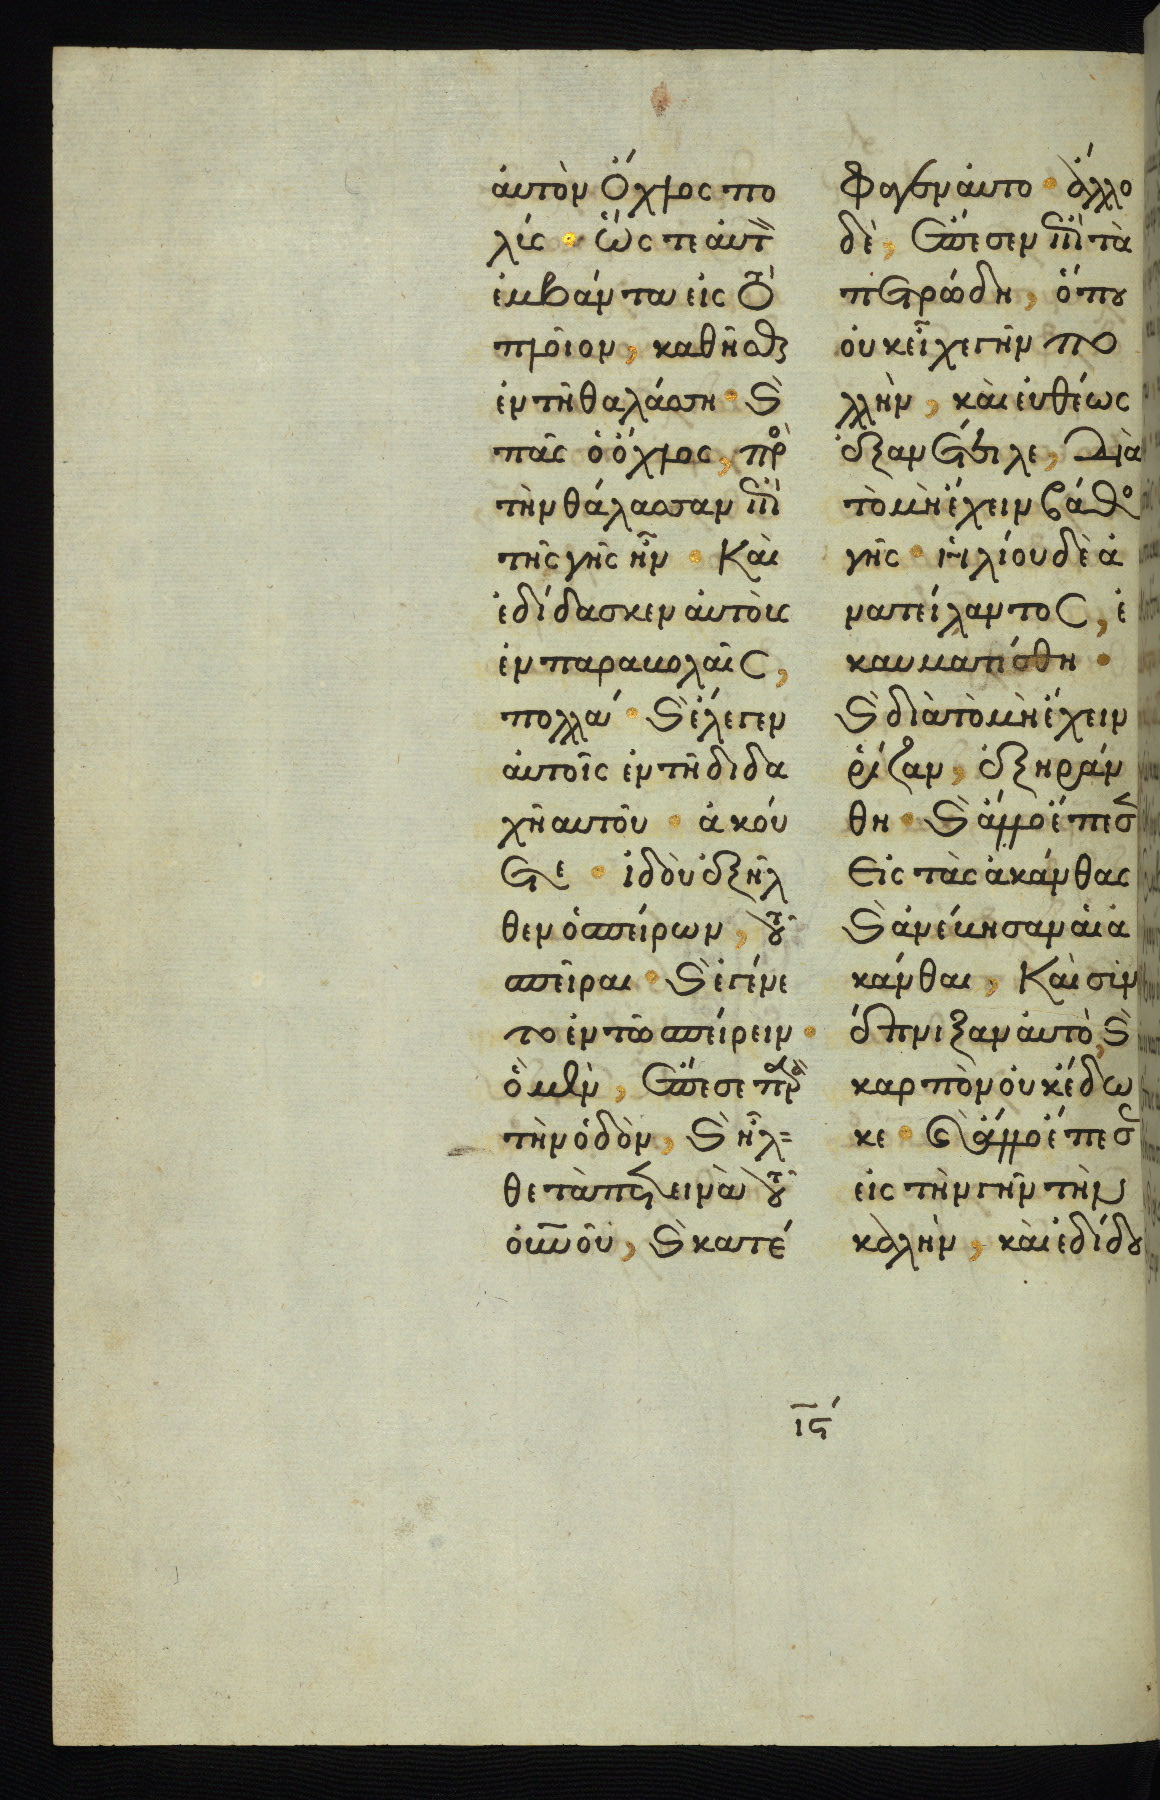 ἀυτὸν ὄχλος πο
λίς · ὥς τε ἀυτ
ἐμβάντα εἰς τὸ
πλοῖον, καθῆσθαι
ἐν τῆ θαλάσση · κ̀
πᾶς ὁ ὄχλος, πρὸ
τὴν θάλασσαν ἐπὶ
τῆς γῆς ἦν · Καὶ
ἐδίδασκεν ἀυτὸις
ἐν παραβολαῖς,
πολλά · κ̀ ἔλεγεν
ἀυτοῖς ἐν τῆ διδα
χῆ αυτοῦ · ἀκού
ετε · ἰδὸυ ἐξῆλ
θεν ὁ σπείρων, τοῦ
σπεῖραι · κ̀ ἐγένε
το ἐν τῶ σπείρειν ·
ὃ μὲν, ἔπεσε παρὰ
τὴν ὁδὸν, κ̀ ἦλ=
θε τὰ πετεινὰ τοῦ
οὐνοῦ, κ̀ κατέ
φαγεν ἀυτο · ἄλλο
δὲ, ἔπεσεν ἐπὶ τὰ
πετρώδη, ὅπου
ὀυκ εἶχε γῆν πο
λλὴν, κὰι ἐυθέως
ἐξανέτειλε, Διὰ
τὸ μὴ ἔχειν βάθο
γῆς · ἡλίου δὲ ἀ
νατείλαντος, ἐ
καυματίσθη ·
κ̀ διὰ τὸ μὴ ἔχειν
ῥίζαν, ἐξηράν
θη · κ̀ ἄλλο ἔπεσεν
Εἰς τὰς ἀκάνθας
κ̀ ἀνέβησαν ἁι ἀ
κάνθαι, Καὶ σιν
έπνιξαν ἀυτὸ, κ̀
καρπὸν ὀυκ ἔδω
κε · κ̀ ἄλλο ἔπεσεν
εἰς τὴν γῆν τὴν
καλὴν, κὰι ἐδίδου
ις́